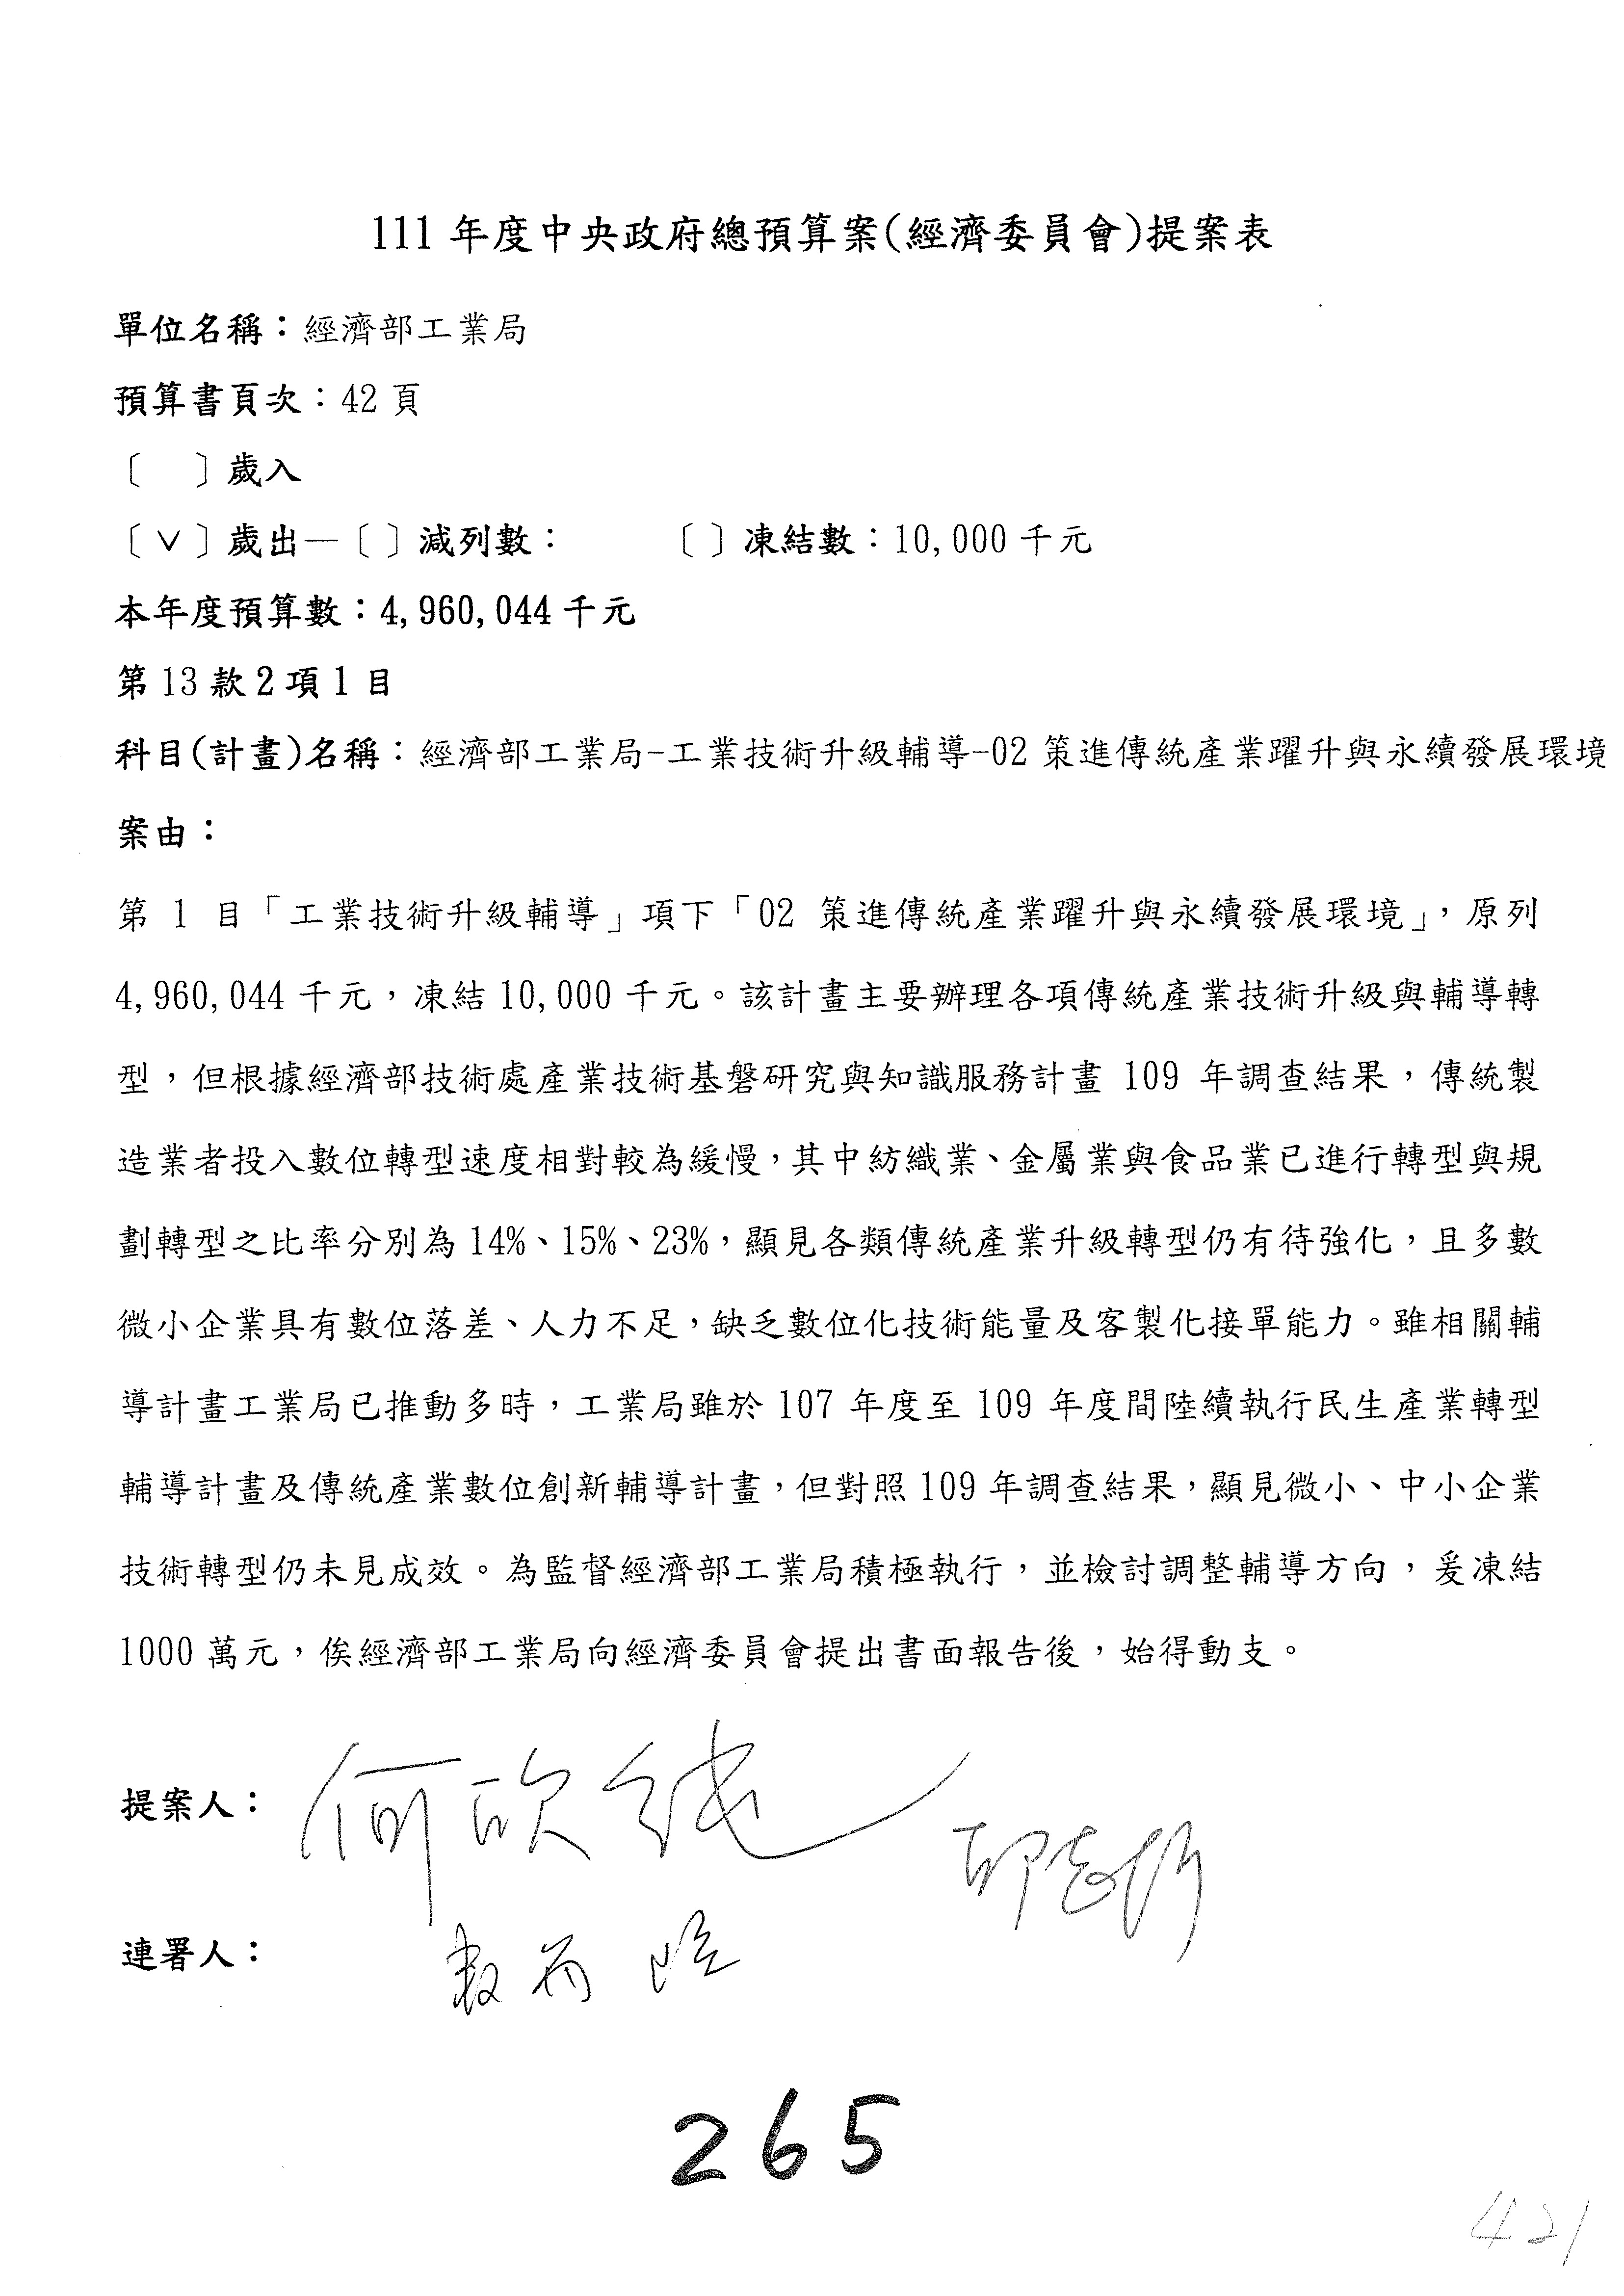 111 年度中央政府總預算案(經濟委員會)提案表
單位名稱：經濟部工業局
預算書頁次：42 頁
〔　〕歲入
〔ˇ〕歲出—〔 〕減列數：　　〔 〕凍結數：10,000 千元
本年度預算數：4,960,044 千元
第 13 款 2 項 1 目
科目(計畫)名稱：經濟部工業局-工業技術升級輔導-02 策進傳統產業躍升與永續發展環境
案由：
第 1 目「工業技術升級輔導」項下「02 策進傳統產業躍升與永續發展環境」，原列
4,960,044 千元，凍結 10,000 千元。該計畫主要辦理各項傳統產業技術升級與輔導轉
型，但根據經濟部技術處產業技術基磐研究與知識服務計畫 109 年調查結果，傳統製
造業者投入數位轉型速度相對較為緩慢，其中紡織業、金屬業與食品業已進行轉型與規
劃轉型之比率分別為 14%、15%、23%，顯見各類傳統產業升級轉型仍有待強化，且多數
微小企業具有數位落差、人力不足，缺乏數位化技術能量及客製化接單能力。雖相關輔
導計畫工業局已推動多時，工業局雖於 107 年度至 109 年度間陸續執行民生產業轉型
輔導計畫及傳統產業數位創新輔導計畫，但對照 109 年調查結果，顯見微小、中小企業
技術轉型仍未見成效。為監督經濟部工業局積極執行，並檢討調整輔導方向，爰凍結
1000 萬元，俟經濟部工業局向經濟委員會提出書面報告後，始得動支。
提案人：何欣純
邱志偉
連署人：
265
421